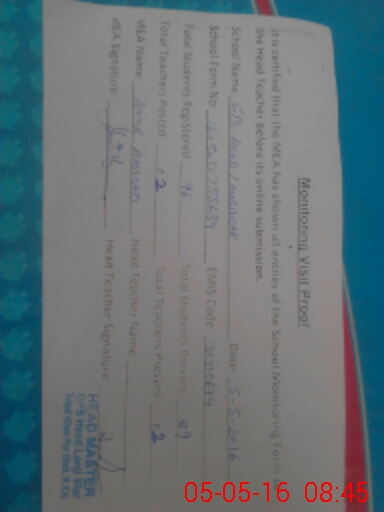 Monitoring Visit Proof
It is certified that the MEA has shown all entries of the School Monitoring Form
the Head Teacher before its online submission.
School Name GPS Head Date 5-5-2016
School Form No EMIS Code
Total Students Registered 96 Total Students Present 89
Total Teachers Posted 02 Total Teachers Present 02
MEA Name Head Teacher Name
MEA Signature Head Teacher Signature
HEAD MASTER
GPS Head
05-05-16 08:45